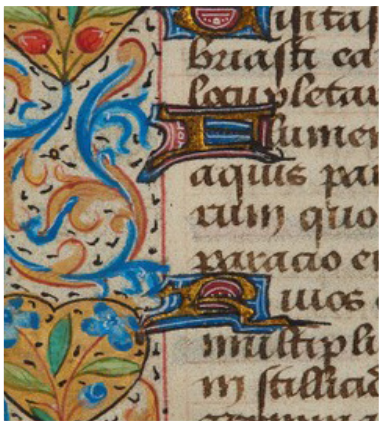 Visitas
briasti ea
locupletar
Flumen
aquis par
rum quo
paracio e
Riuos e
multipli
in stillicid
germina